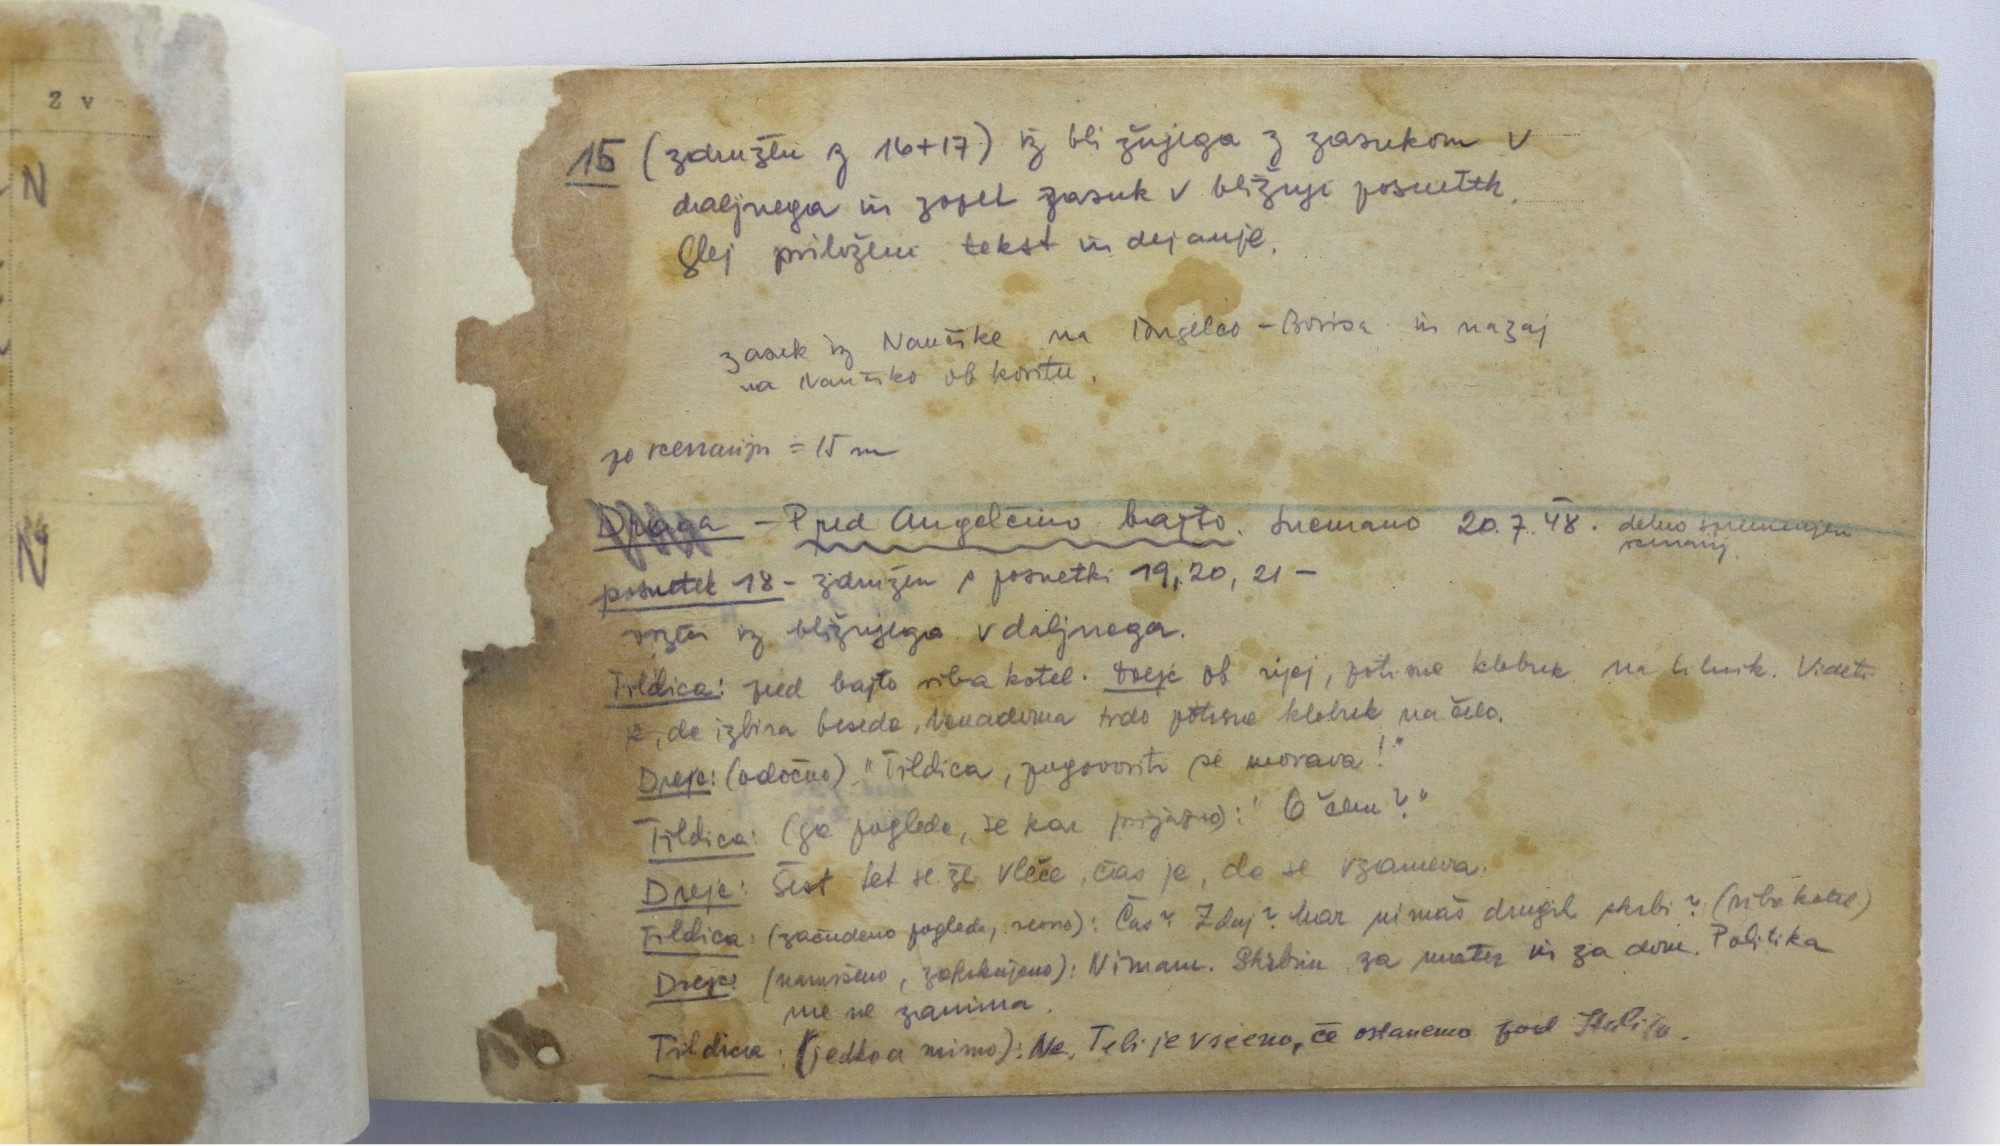 Z v
N
N
15 (združen iz 16+17) iz bližnjega z zasukom v
daljnega in zopet zasuk v bližnji posnetek.
Glej priloženi tekst in dejanje.
zasuk iz Nančike na Angelco - Borisa in nazaj
na Nančiko ob koritu.
po scenariju = 15 m
Draga - Pred Angelčino bajto. Snemano 20.7.48. delno spremenjen
scenarij.
posnetek 18 - združen s posnetki 19, 20, 21 -
vožnja iz bližnjega v daljnega.
Tildica: pred bajto riba kotel. Drejc ob njej, potisne klobuk na tilnik. Videti
je, da izbira besede. Nenadoma trdo potisne klobuk na čelo.
Drejc: (odločno) "Tildica, pogovoriti se morava!"
Tildica: (ga pogleda, še kar prijazno): "O čem?"
Drejc: Šest let se že vleče, čas je, da se vzameva.
Tildica: (začudeno pogleda, resno): Čas? Zdaj? Mar nimaš drugih skrbi? (riba kotel)
Drejc: (namršeno, zakrknjeno): Nimam. Skrbim za mater in za dom. Politika
me ne zanima.
Tildica: (jedko a mirno): Ne, Tebi je vseeno, če ostanemo pod Italijo.